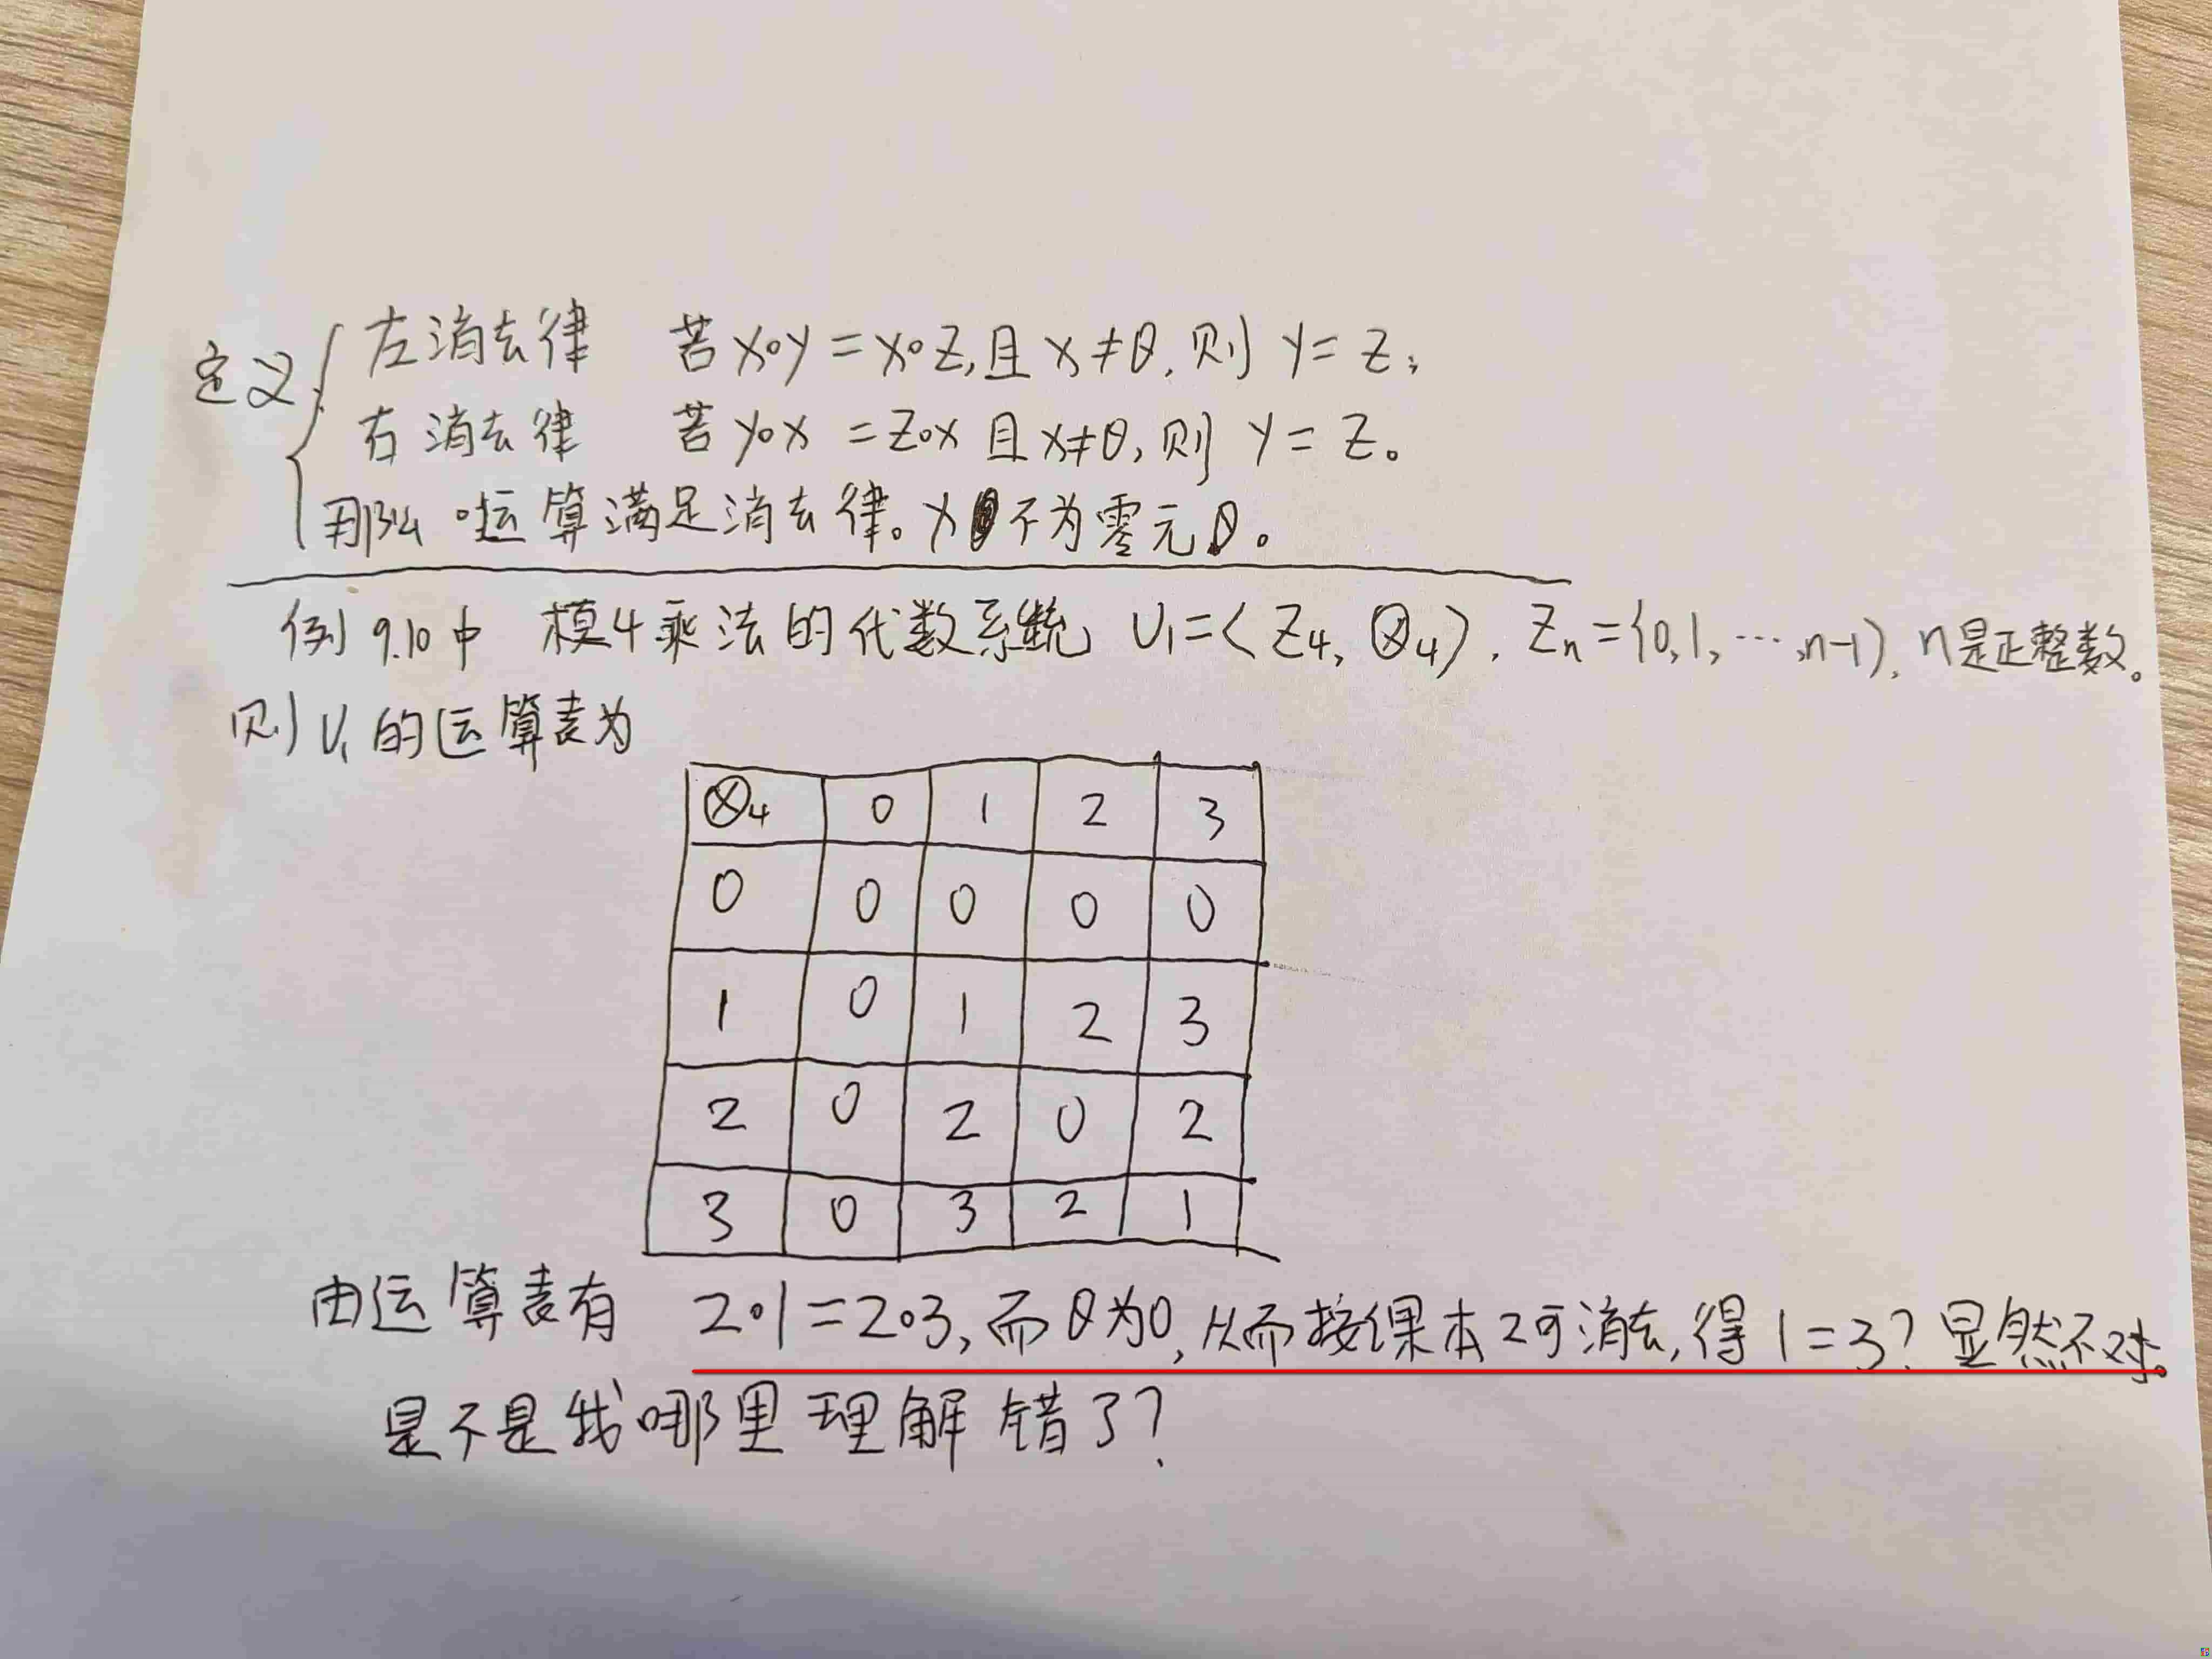 定义 左消去律 若x∘y=x∘z,且x≠θ,则y=z;
右消去律 若y∘x=z∘x且x≠θ,则y=z。
那么∘运算满足消去律。x不为零元θ。
例9.10中 模4乘法的代数系统 U₁=⟨Z₄,⊗₄⟩. Zn={0,1,⋯,n-1}, n是正整数。
则U₁的运算表为
⊗₄ 0 1 2 3
0 0 0 0 0
1 0 1 2 3
2 0 2 0 2
3 0 3 2 1
由运算表有 2∘1=2∘3,而θ为0,从而按课本2可消去,得1=3?显然不对。
是不是我哪里理解错了?